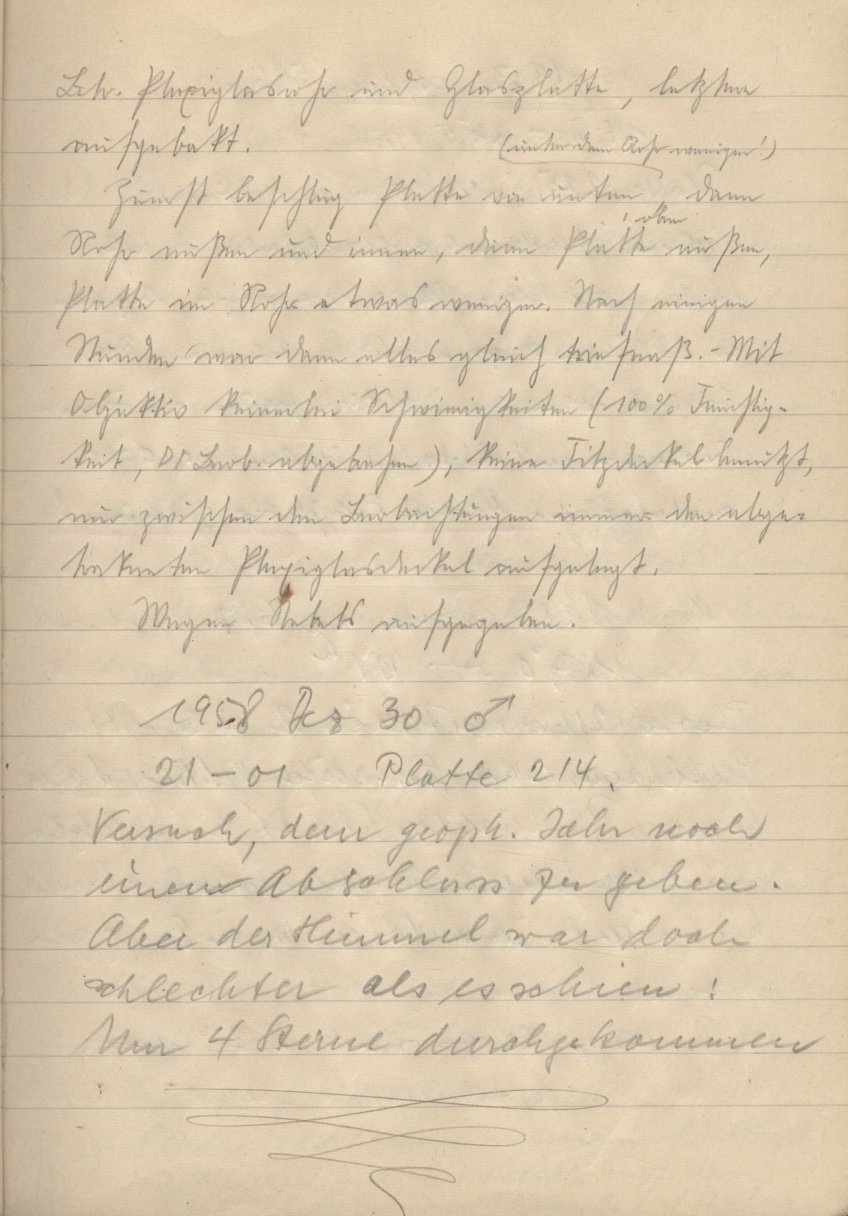 Betr. Plexiglasrohr und Glasplatte, letztere
aufgebakt.
(unter dem Rohr weniger!)
Zuerst beschlug Platte von unten, dann
oben
Rohr außen und innen, dann Platte außen,
Platte im Rohr etwas weniger. Nach einigen
Stunden war dann alles gleich triefnaß. – Mit
Objektiv keinerlei Schwierigkeiten (100% Feuchtig-
keit, Beob. abgebrochen), keine Filzdeckel benutzt,
nur zwischen den Beobachtungen immer den abge-
trockneten Plexiglasdeckel aufgelegt.
Wegen Nebels aufgegeben.
1958 Dez 30 ♂
21 – 01 Platte 214.
Versuch, dem geoph. Jahr noch
einen Abschluss zu geben.
Aber der Himmel war doch
schlechter als es schien!
Nur 4 Sterne durchgekommen